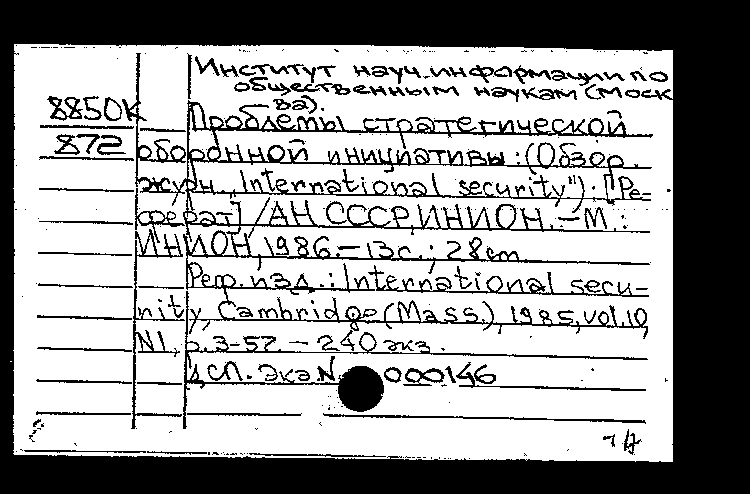 Институт науч. информации по
общественным наукам (Моск
ва).
8850К Проблемы стратегической
872 оборонной инициативы: (Обзор.
журн. „International security"): [Ре-
ферат] /АН СССР, ИНИОН. – М.:
ИНИОН, 1986. – 13с.; 28cm.
Реф. изд.: International secu-
rity, Cambridge (Mass.), 1985, vol.10,
N1, p.3-57. – 240 экз.
ДСП. Экз. N 000146